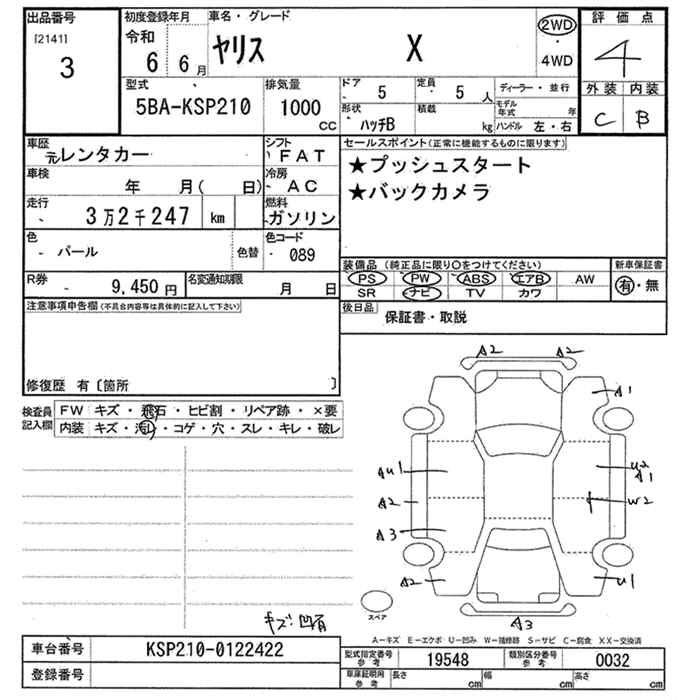 出品番号 初度登録年月 車名・グレード 2WD 評価点
[2141] 令和 ・ 4WD
3 6 6月 ヤリス X 4
型式 排気量 ドア 定員 ディーラー・並行 外装 内装
5BA-KSP210 1000 CC 5 5 人 モデル年式 年 C B
形状 ハッチB 積載 kg ハンドル 左・右
車歴 元レンタカー シフト FAT セールスポイント(正常に機能するものに限ります)
車検 年 月( 日) 冷房 AC ★プッシュスタート
走行 3万2千247 km 燃料 ガソリン ★バックカメラ
色 パール 色替 色コード 089
装備品(純正品に限り○をつけてください) 新車保証書
R券 9,450円 名変通知期限 月 日 PS PW ABS エアB AW 有・無
SR ナビ TV カワ
注意事項申告欄(不具合内容等は具体的に記入して下さい) 後日品 保証書・取説
修復歴 有〔箇所 〕
検査員記入欄 FW キズ・飛石・ヒビ割・リペア跡・×要
内装 キズ・汚れ・コゲ・穴・スレ・キレ・破レ
A2 A2
A1
AU1 U2 A1
A2 W2
A3
A2 U1
A3
スペア
キズ凹有
A−キズ E−エクボ U−凹み W−補修跡 S−サビ C−腐食 XX−交換済
車台番号 KSP210-0122422 型式指定番号参考 19548 類別区分番号参考 0032
登録番号 車庫証明用参考 長さ cm 幅 cm 高さ cm